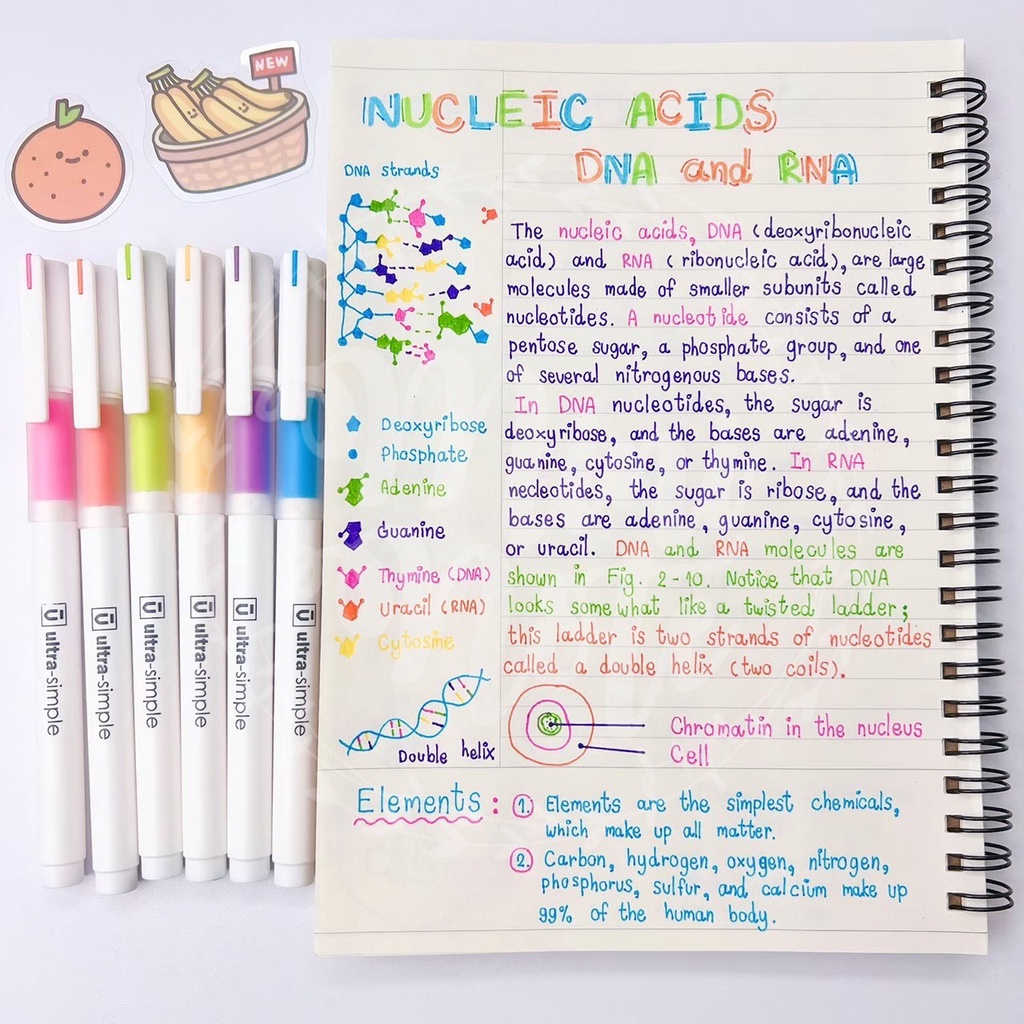 NEW
NUCLEIC ACIDS
DNA and RNA
DNA strands
The nucleic acids, DNA (deoxyribonucleic
acid) and RNA (ribonucleic acid), are large
molecules made of smaller subunits called
nucleotides. A nucleotide consists of a
pentose sugar, a phosphate group, and one
of several nitrogenous bases.
In DNA nucleotides, the sugar is
deoxyribose, and the bases are adenine,
guanine, cytosine, or thymine. In RNA
necleotides, the sugar is ribose, and the
bases are adenine, guanine, cytosine,
or uracil. DNA and RNA molecules are
shown in Fig. 2-10. Notice that DNA
looks somewhat like a twisted ladder;
this ladder is two strands of nucleotides
called a double helix (two coils).
Deoxyribose
Phosphate
Adenine
Guanine
Thymine (DNA)
Uracil (RNA)
Cytosine
Double helix
Chromatin in the nucleus
Cell
Elements: 1. Elements are the simplest chemicals,
which make up all matter.
2. Carbon, hydrogen, oxygen, nitrogen,
phosphorus, sulfur, and calcium make up
99% of the human body.
ultra-simple
ultra-simple
ultra-simple
ultra-simple
ultra-simple
ultra-simple